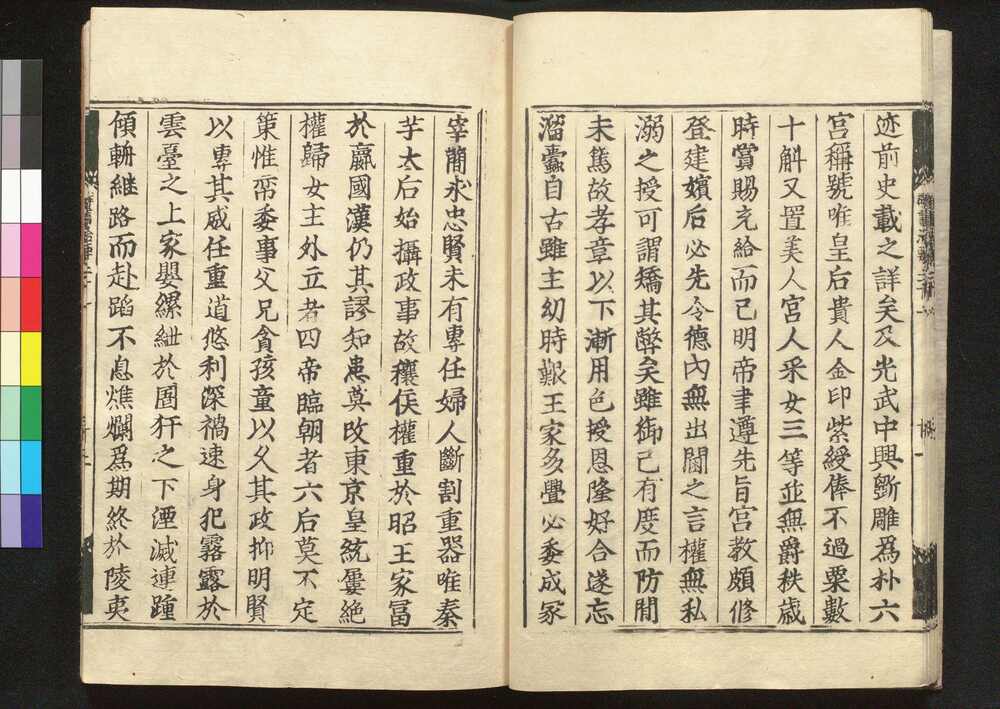 迹前史載之詳矣及光武中興斲雕爲朴六
宮稱號唯皇后貴人金印紫綬俸不過粟數
十斛又置美人宮人采女三等並無爵秩歳
時賞賜充給而已明帝聿遵先旨宮教頗修
登建嬪后必先令德內無出閫之言權無私
溺之授可謂矯其弊矣雖御己有度而防閒
未篤故孝章以下漸用色授恩隆好合遂忘
溜蠹自古雖主幼時艱王家多釁必委成冢
宰簡求忠賢未有專任婦人斷割重器唯秦
芋太后始攝政事故穰侯權重於昭王家富
於嬴國漢仍其謬知患莫改東京皇統屢絶
權歸女主外立者四帝臨朝者六后莫不定
策惟帟委事父兄貪孩童以久其政抑明賢
以專其威任重道悠利深禍速身犯霧露於
雲臺之上家嬰縲紲於圄犴之下湮滅連踵
傾輈継路而赴蹈不息燋爛爲期終於陵夷